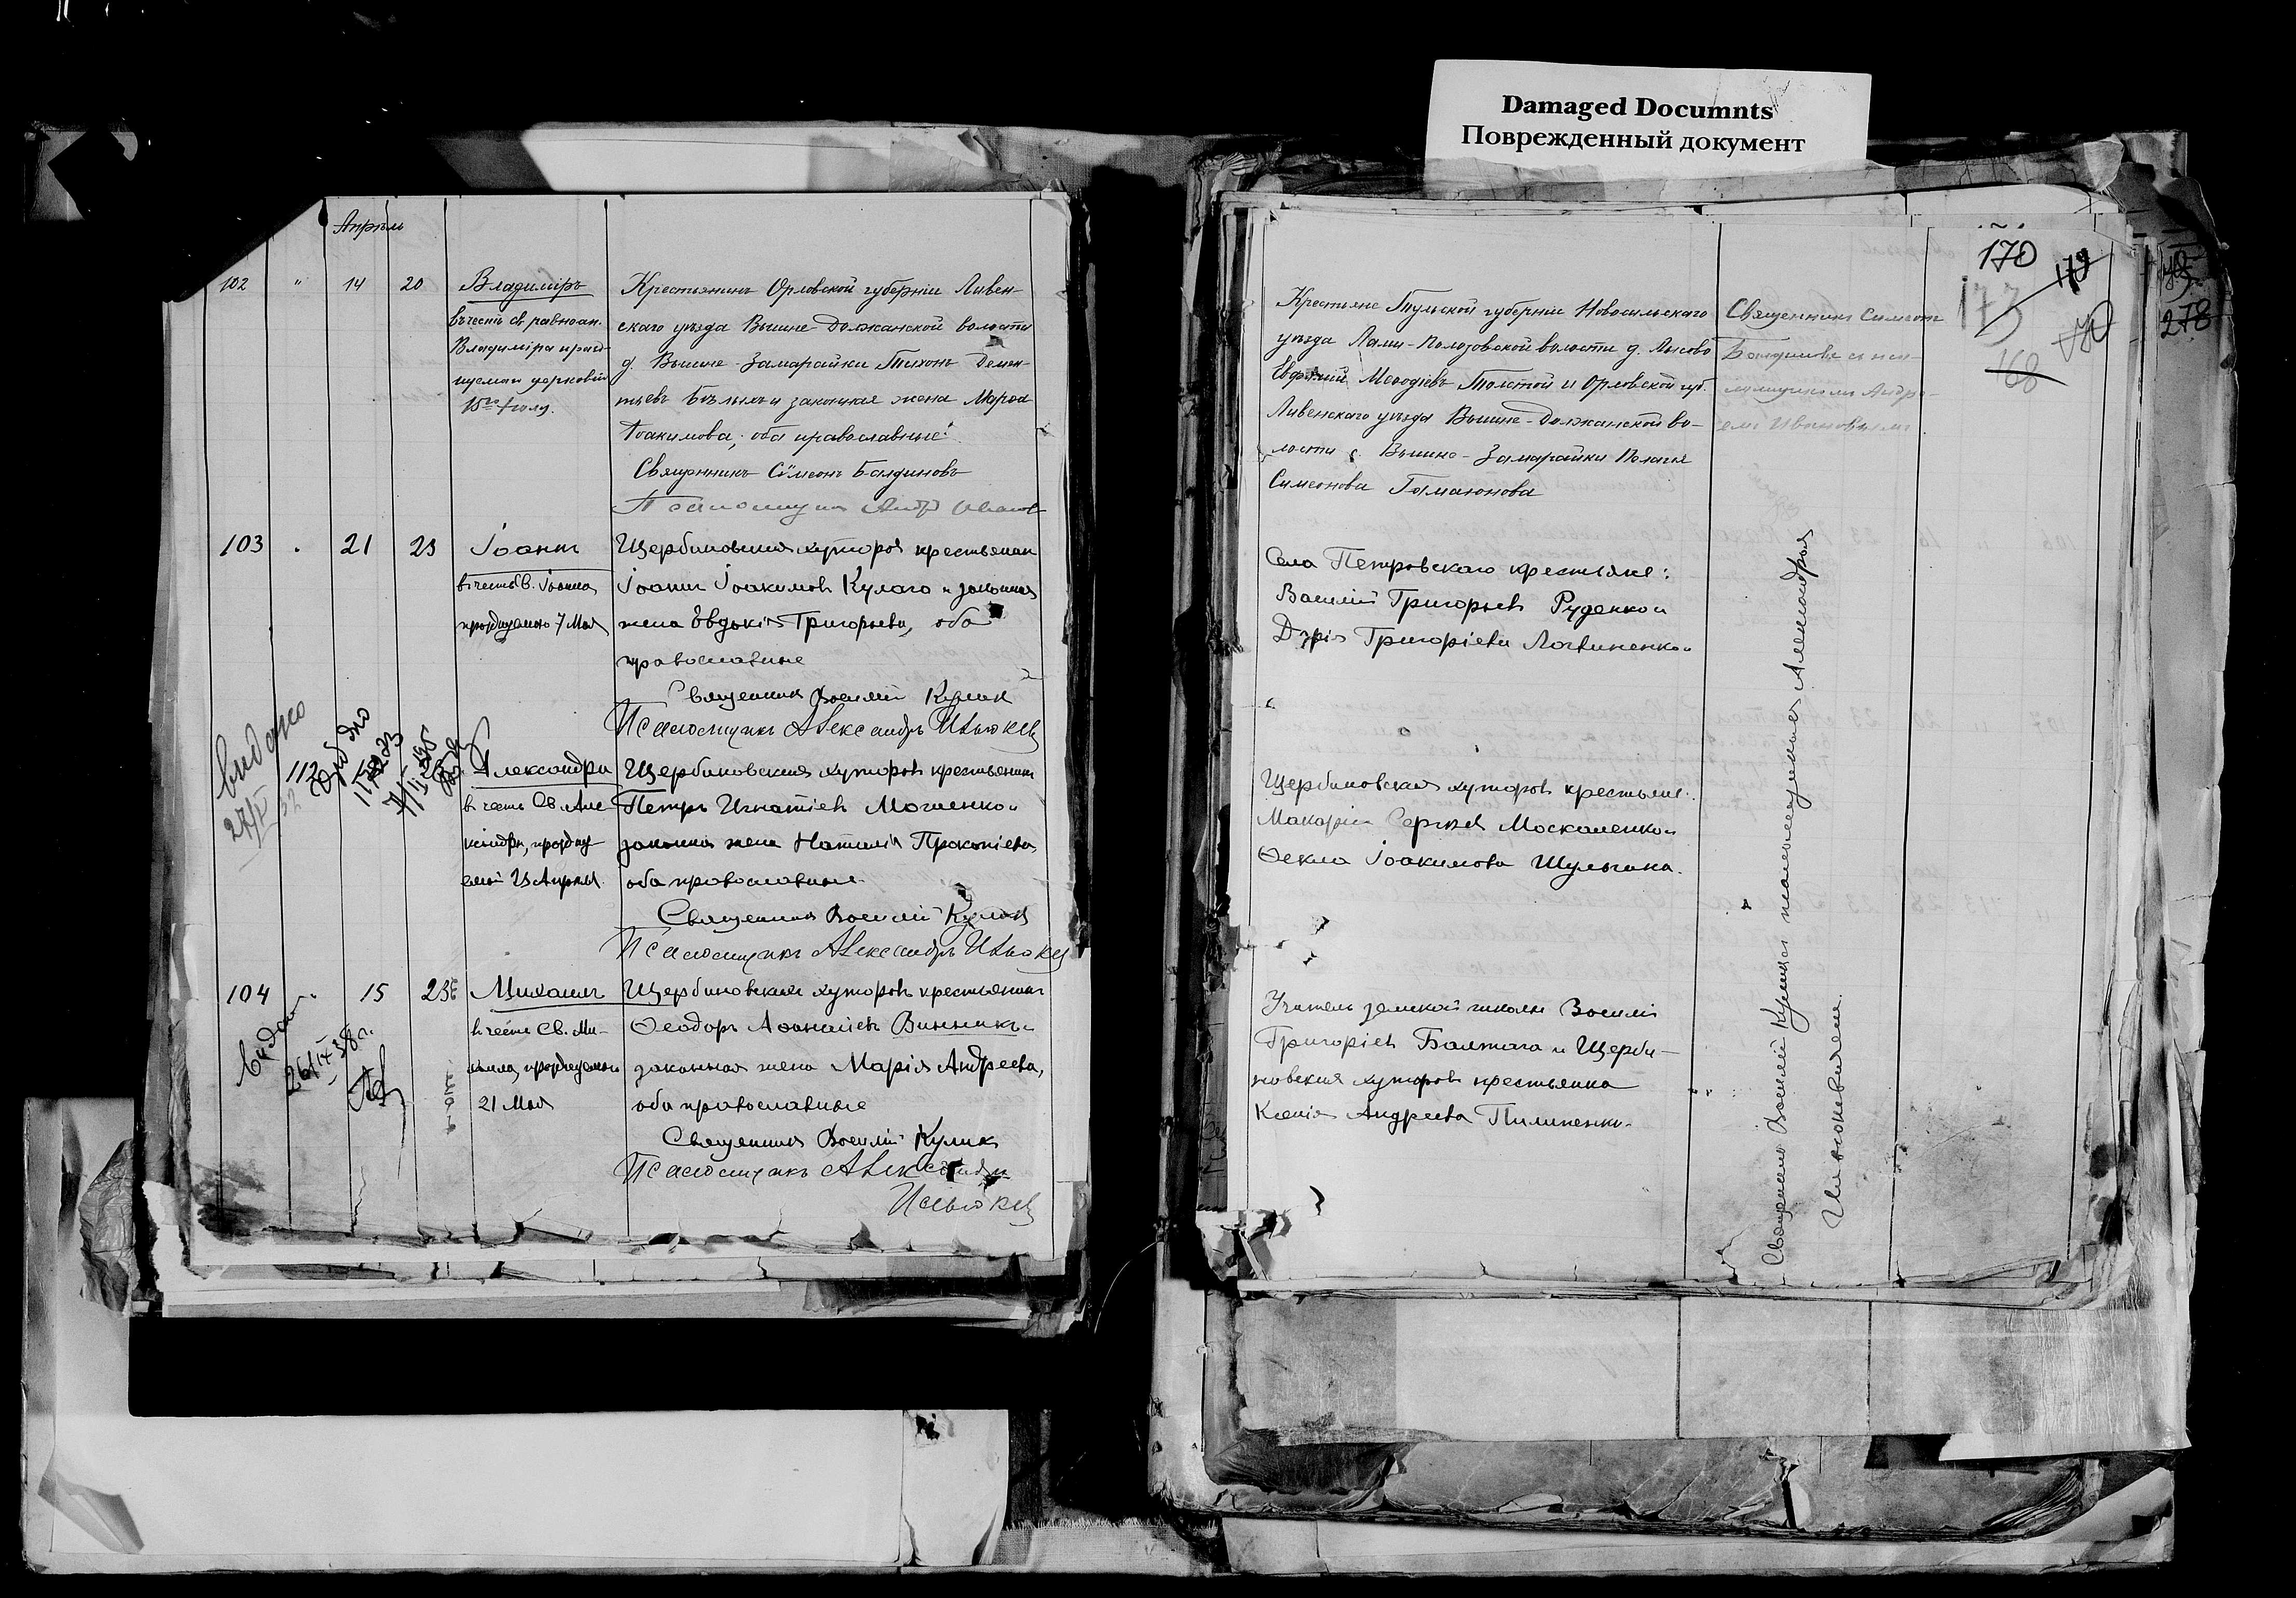 Damaged Documnts
Поврежденный документ
Апрѣль
102 " 14 20 Владиміръ
въ честь св. равноап.
Владиміра празд-
нуемаго церковію
15го Іюля.
Крестьянинъ Орловской губерніи Ливен-
скаго уѣзда Вышне-Должанской волости
д. Вышне-Замарайки Тихонъ Демен-
тьевъ Бѣлыхъ и законная жена Марѳа
Іоакимова, оба православные
Священникъ Сумеонъ Балдиновъ
Псаломщикъ Андр Иванов
103 21 23 Іоаннъ
въ честь св. Іоанна,
празднуемаго 7 Мая
Щербиновскихъ хуторовъ крестьянинъ
Іоаннъ Іоакимовъ Кулаго и законная
жена Евдокія Григорьева, оба
православные
Священникъ Василій Кулик
Псаломщикъ Александръ
видано
27/V 32
112
Александра
въ честь Св. Але-
ксандры, праздну-
емой 23 Апрѣля
Щербиновскихъ хуторовъ крестьянинъ
Петръ Игнатіевъ Мошенко и
законная жена Наталія Прокопіева,
оба православные
Священникъ Василій Кулик
Псаломщикъ Александръ
104 15 23 Михаилъ
въ честь Св. Ми-
хаила, празднуемаго
21 Мая
видан
26/IX 38 г.
Щербиновскихъ хуторовъ крестьянинъ
Ѳеодоръ Аѳанасіевъ Винникъ и
законная жена Марія Андреева,
оба православные
Священникъ Василій Кулик
Псаломщикъ Александръ
170
173
168
278
Крестьяне Тульской губерніи Новосильскаго
уѣзда волости д. Лысово
Меѳодіевъ Толстой и Орловской губ.
Ливенскаго уѣзда Вышне-Должанской во-
лости с. Вышне-Замарайки Пелагія
Симеонова Гамаюнова
Священникъ Симеонъ
Балдиновъ съ пса-
ломщикомъ Андре-
емъ Ивановымъ
Села Петровскаго крестьяне:
Василій Григорьевъ Руденко и
Дарія Григоріева Логвиненко
Щербиновскихъ хуторовъ крестьяне:
Макарій Сергѣевъ Москаленко и
Ѳекла Іоакимова Шульгина.
Учитель земской школы Василій
Григоріевъ Балтага и Щерби-
новскихъ хуторовъ крестьянка
Ксенія Андреева Пилипенко
Священникъ Василій Куликъ съ псаломщикомъ Александромъ